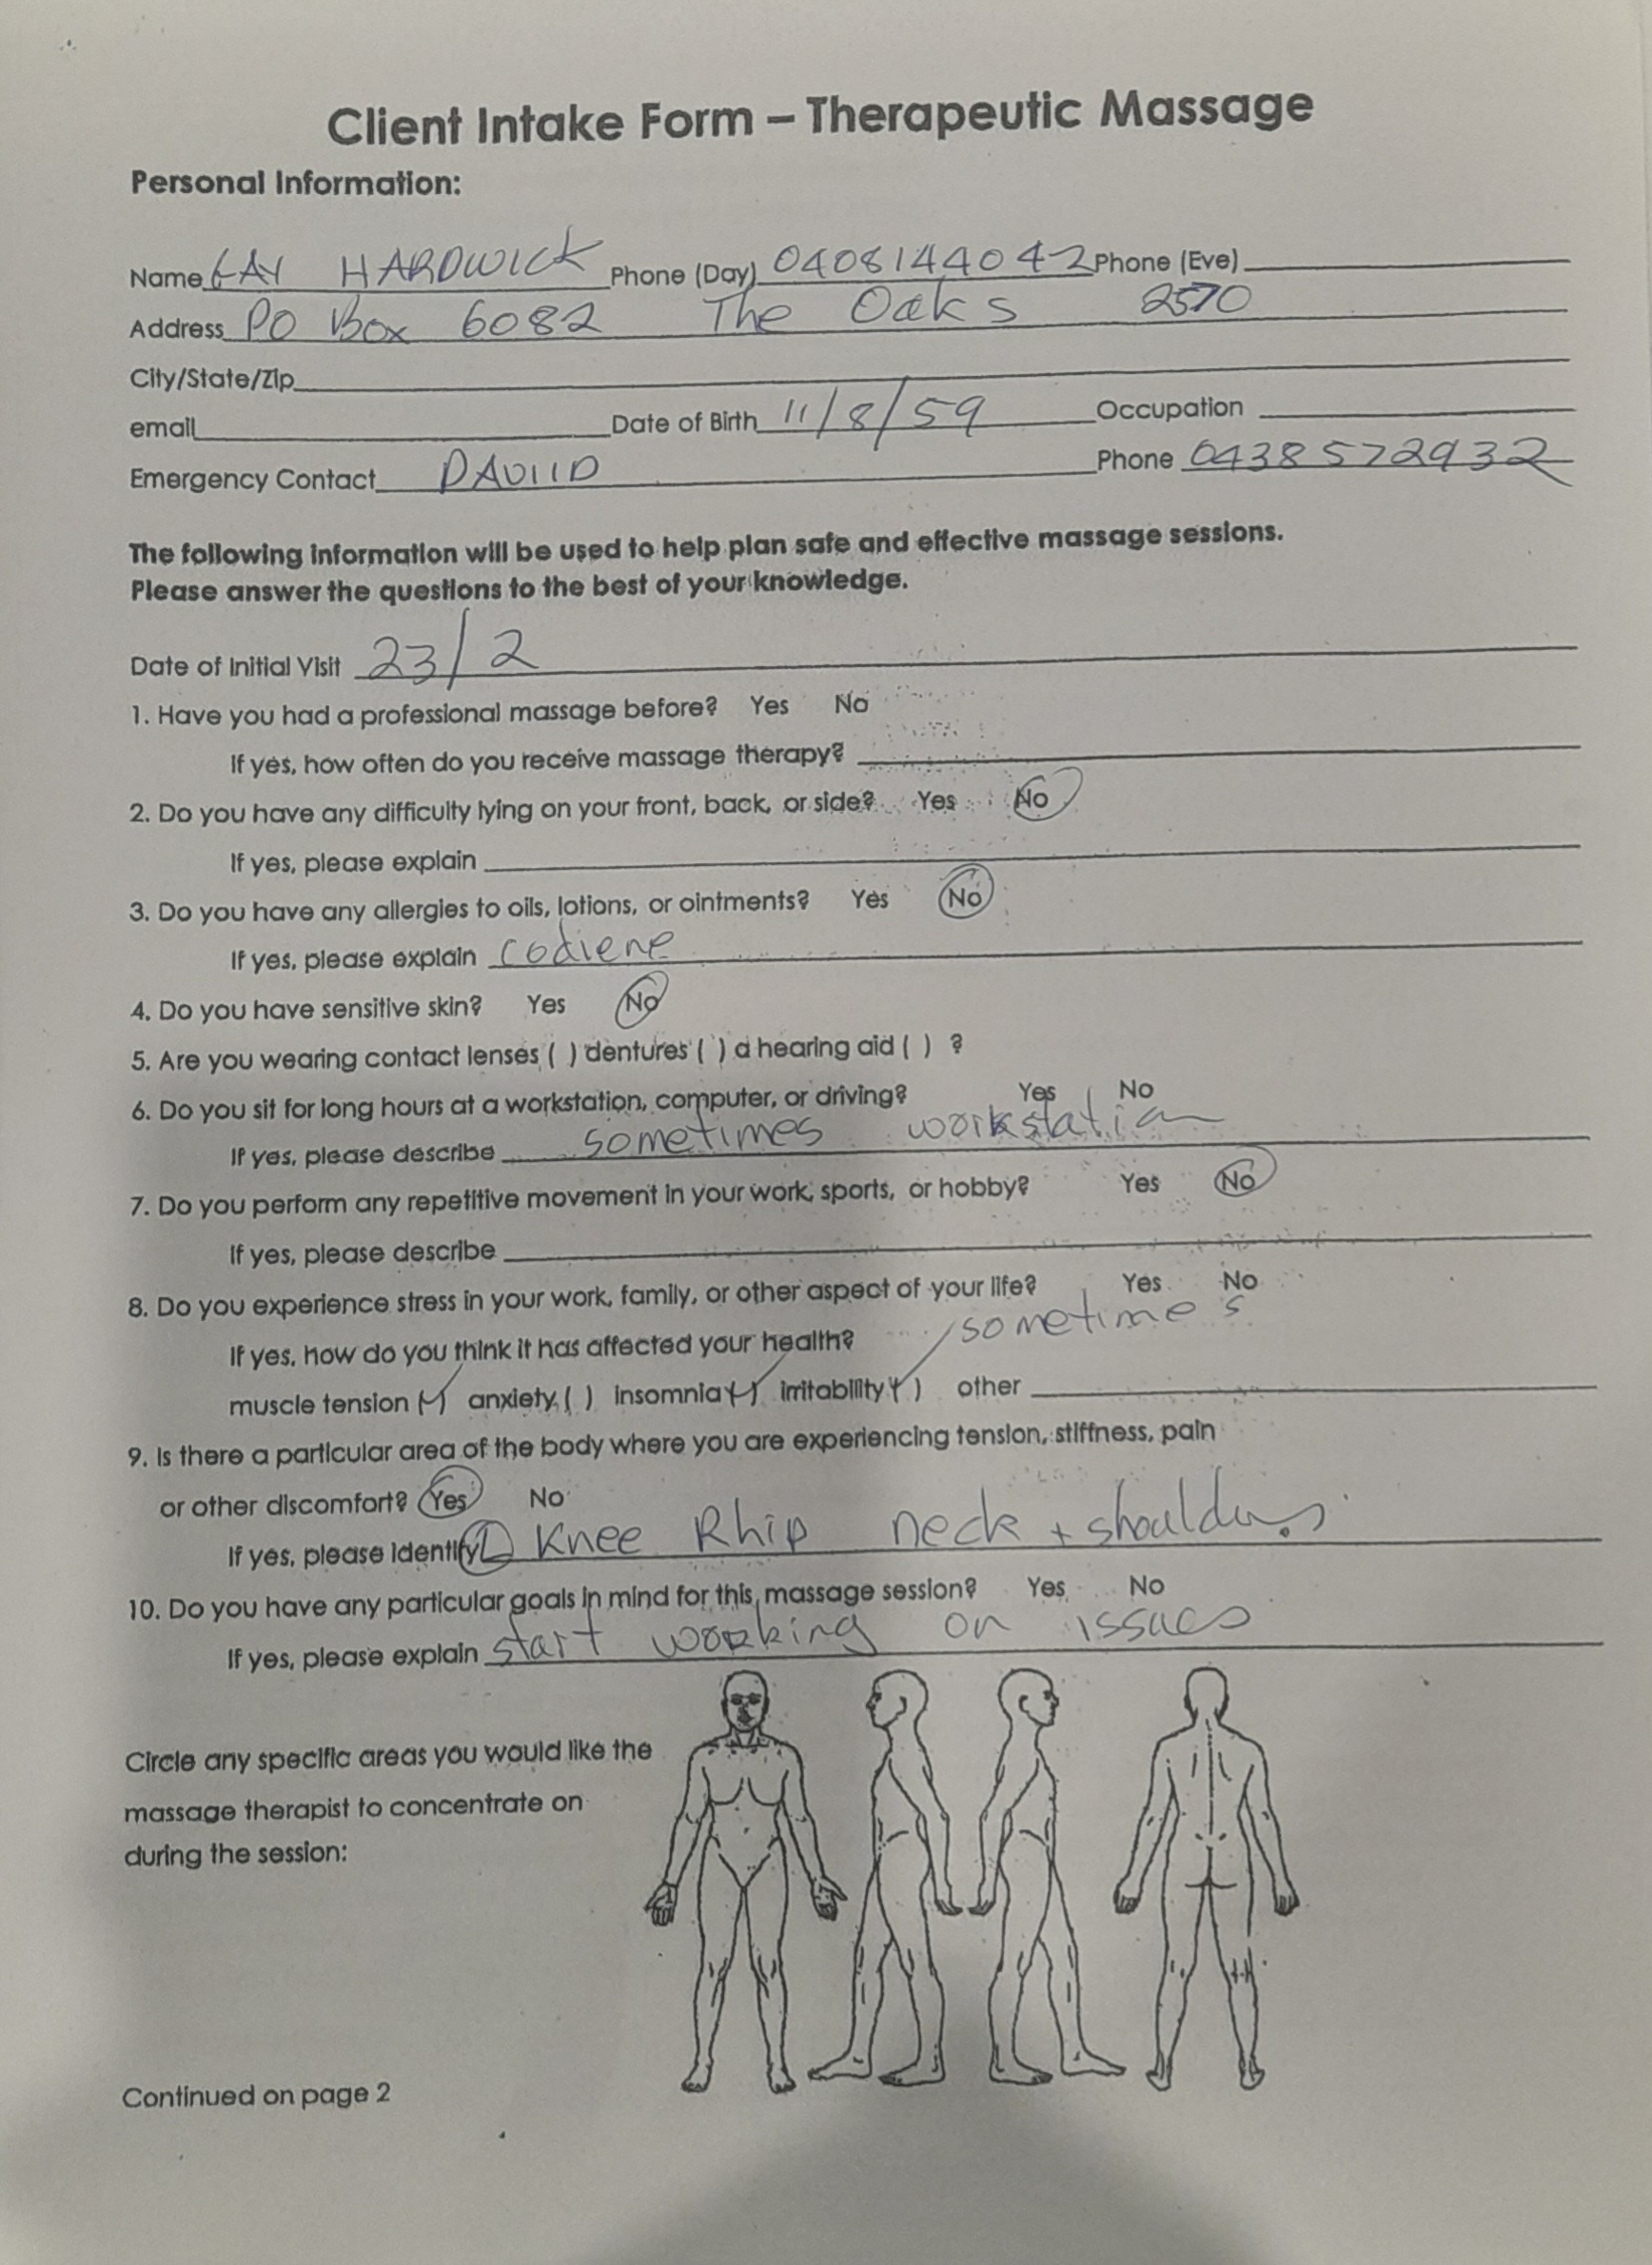 Client Intake Form – Therapeutic Massage
Personal Information:
Name HARDWICK Phone (Day) 0408144042 Phone (Eve)
Address PO Box 6082 The Oaks 2570
City/State/Zip
email Date of Birth 11/8/59 Occupation
Emergency Contact DAVIID Phone 0438572932
The following information will be used to help plan safe and effective massage sessions.
Please answer the questions to the best of your knowledge.
Date of Initial Visit 23/2
1. Have you had a professional massage before? Yes No
If yes, how often do you receive massage therapy?
2. Do you have any difficulty lying on your front, back, or side? Yes No
If yes, please explain
3. Do you have any allergies to oils, lotions, or ointments? Yes No
If yes, please explain codiene
4. Do you have sensitive skin? Yes No
5. Are you wearing contact lenses ( ) dentures ( ) a hearing aid ( ) ?
6. Do you sit for long hours at a workstation, computer, or driving? Yes No
If yes, please describe sometimes workstation
7. Do you perform any repetitive movement in your work, sports, or hobby? Yes No
If yes, please describe
8. Do you experience stress in your work, family, or other aspect of your life? Yes No
sometimes
If yes, how do you think it has affected your health?
muscle tension (✓) anxiety ( ) insomnia (✓) irritability (✓) other
9. Is there a particular area of the body where you are experiencing tension, stiffness, pain
or other discomfort? Yes No
If yes, please identify L Knee R hip neck + shoulders.
10. Do you have any particular goals in mind for this massage session? Yes No
If yes, please explain start working on issues
Circle any specific areas you would like the
massage therapist to concentrate on
during the session:
Continued on page 2